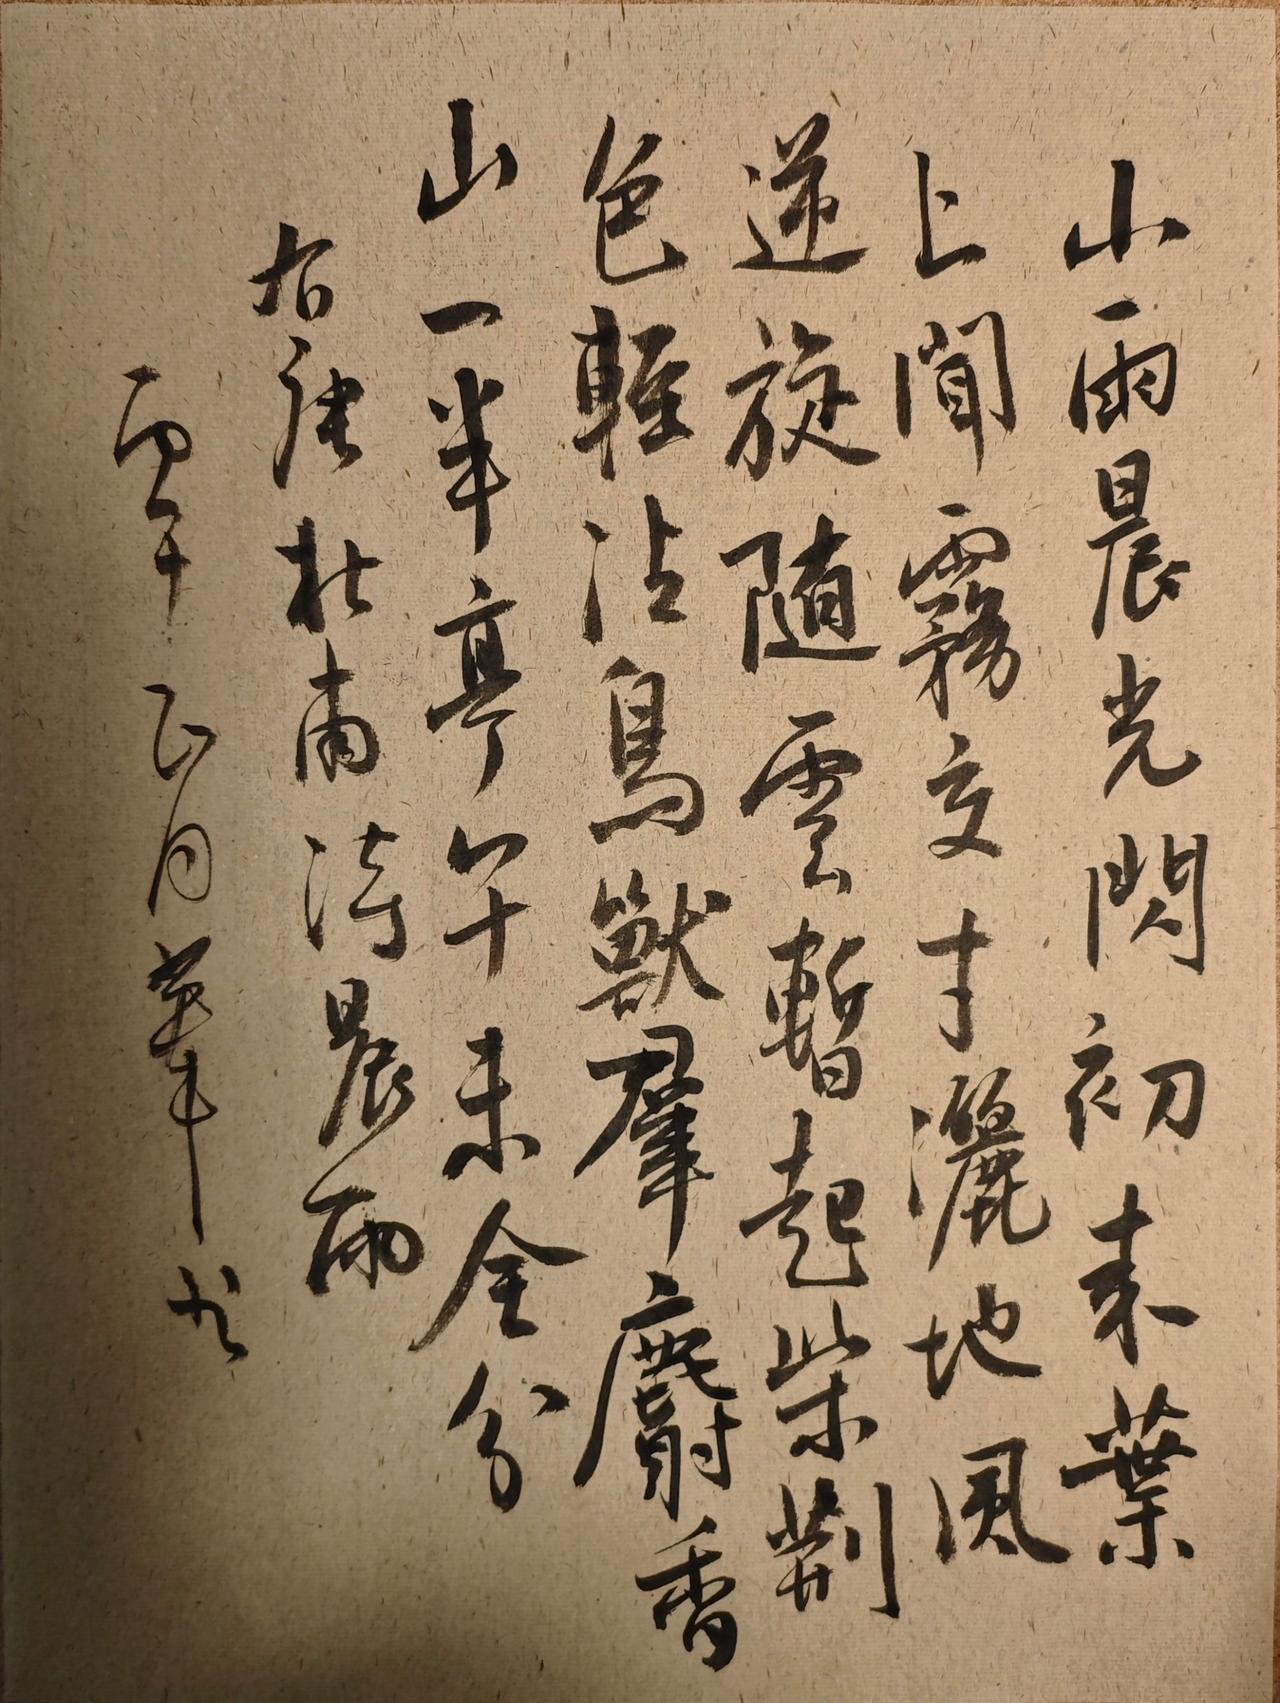 小雨晨光閃初来葉
上聞霧交才灑地風
逆旋随雲暫起柴荆
色輕沾鳥獸羣麝香
山一半亭午未全分
右唐杜甫詩晨雨
丙午正月華书